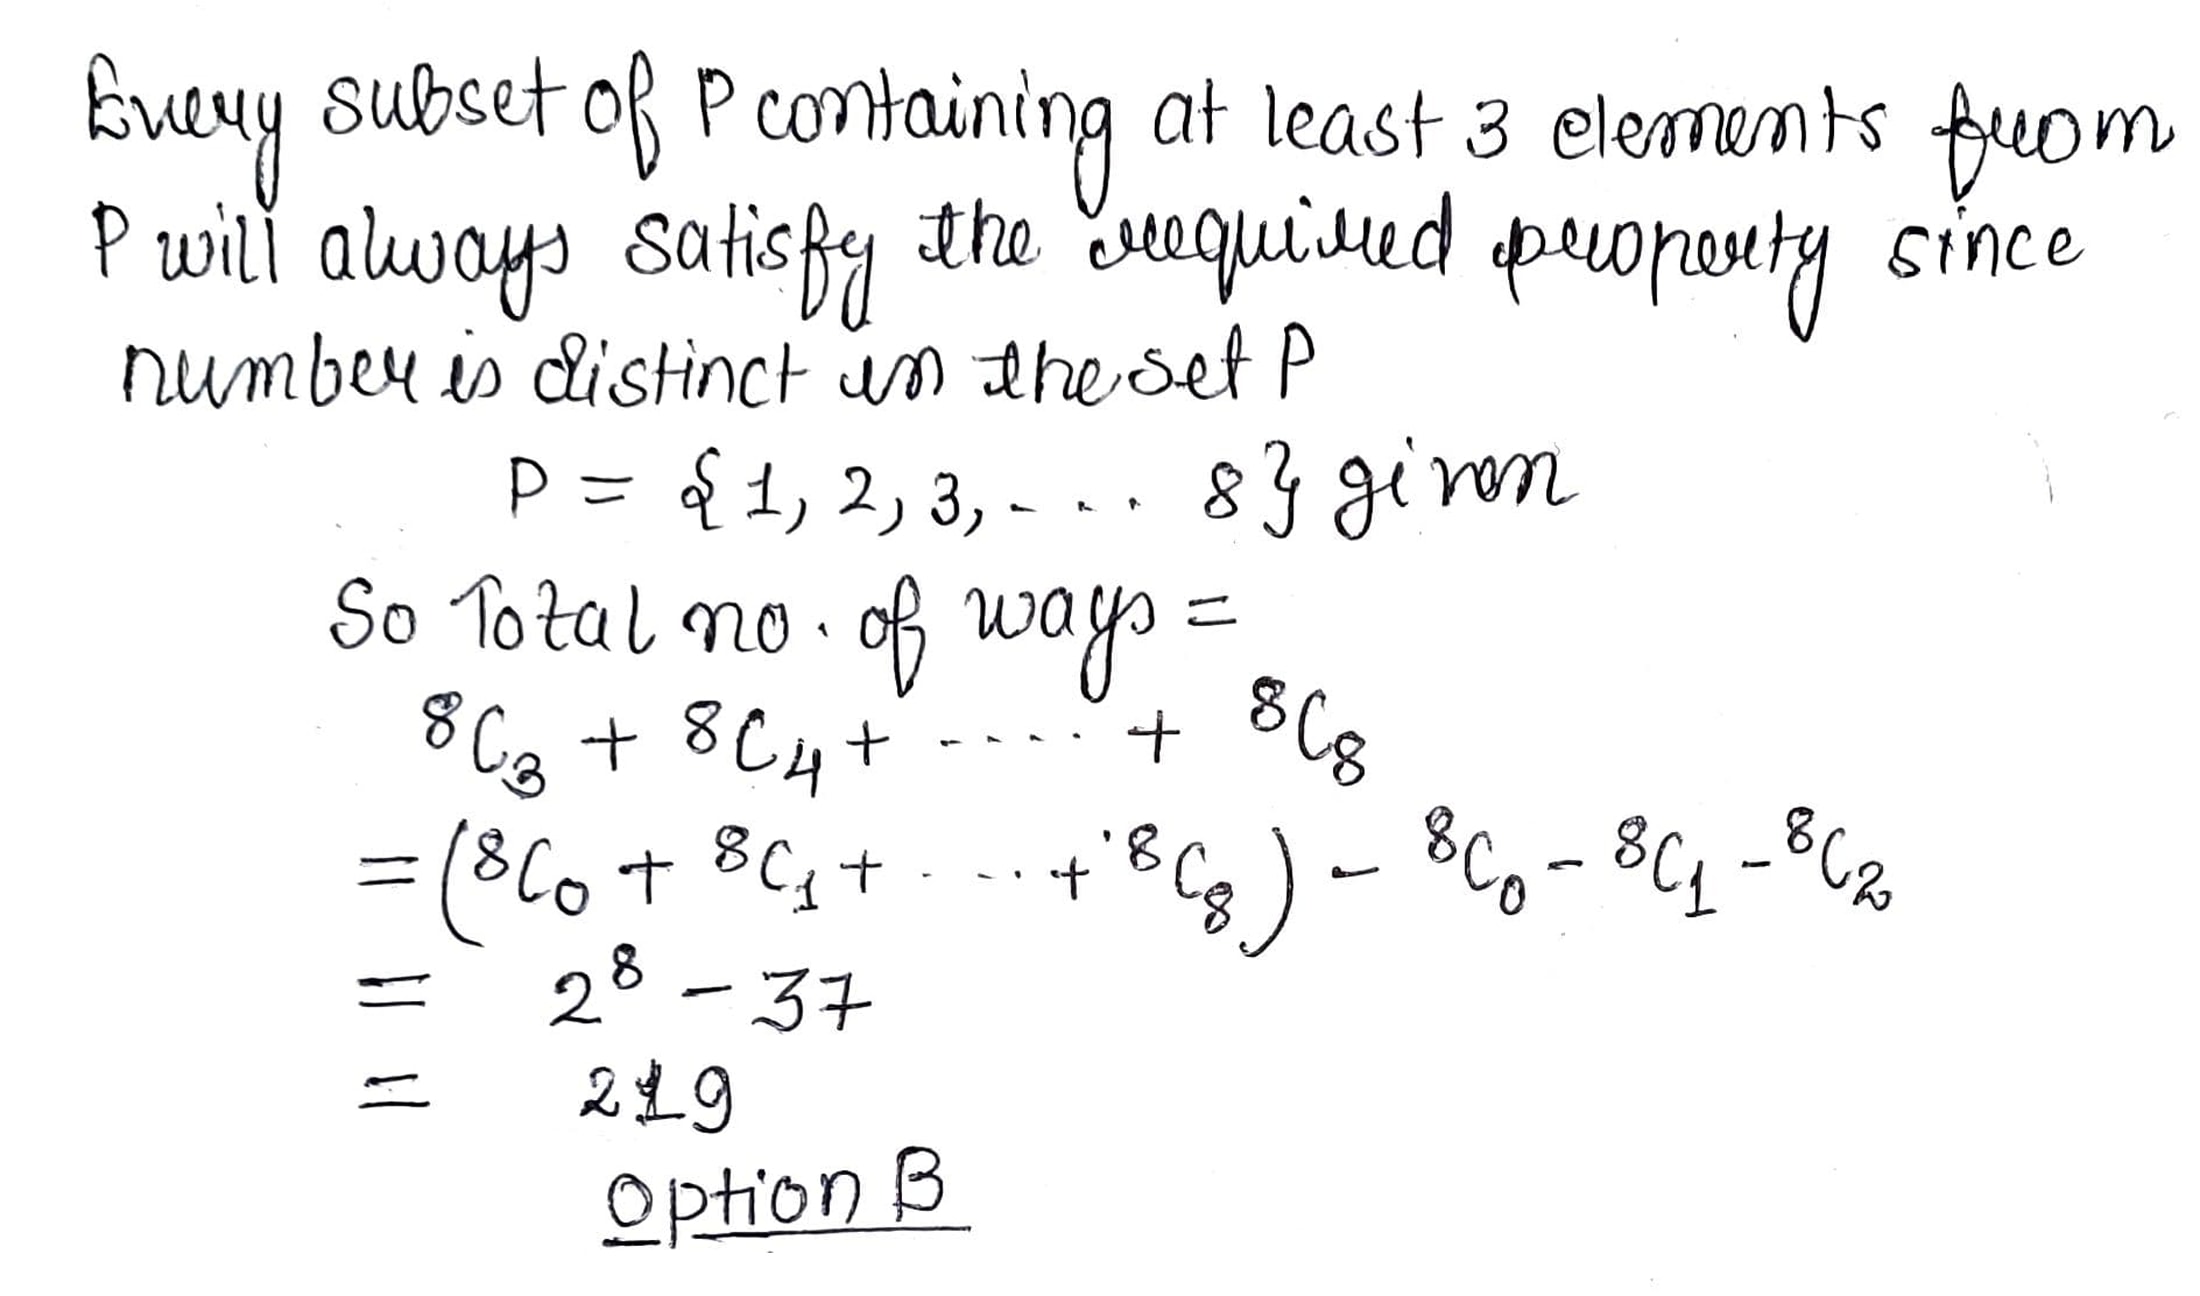 Every subset of P containing at least 3 elements from
P will always satisfy the required property since
number is distinct in the set P
P = {1, 2, 3, - . . . 8} given
So Total no. of ways =
⁸C₃ + ⁸C₄ + ..... + ⁸C₈
= (⁸C₀ + ⁸C₁ + .... + ⁸C₈) - ⁸C₀ - ⁸C₁ - ⁸C₂
= 2⁸ - 37
= 219
Option B